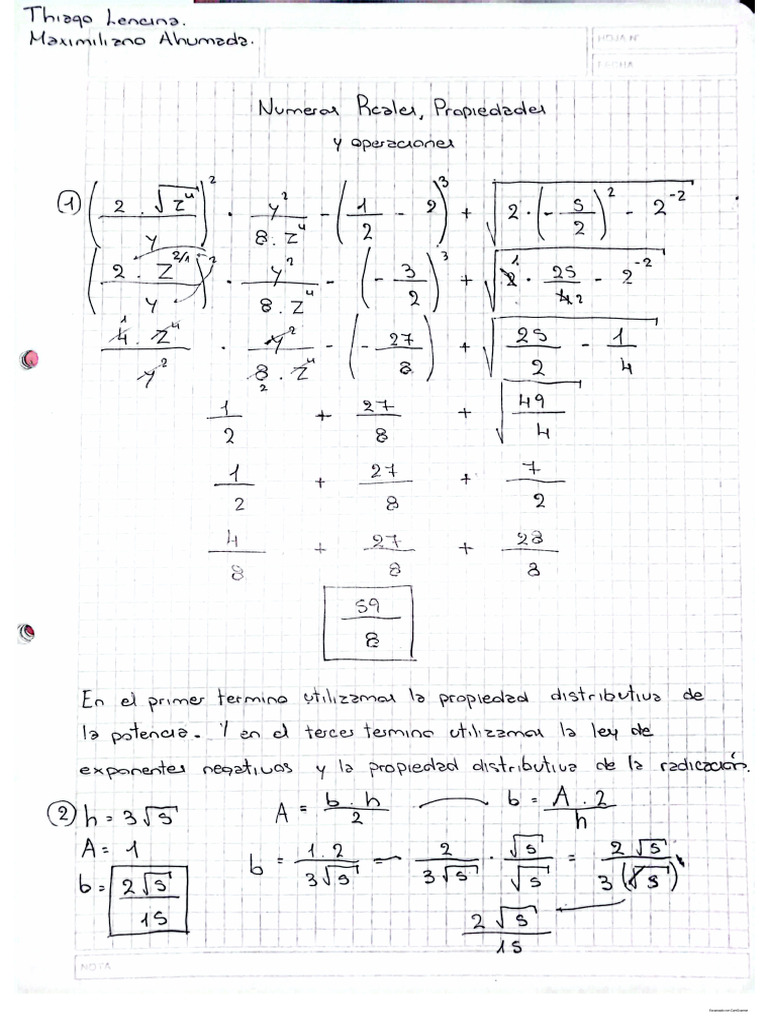 Thiago Lencina.
Maximiliano Ahumada.
HOJA Nº
FECHA
Numeros Reales, Propiedades
y operaciones
① (2 . √z⁴ / y)² . y² / 8.z⁴ - (1/2 - 2)³ + √(2 . (-5/2)² - 2⁻²)
(2 . z^(2/1) / y)² . y² / 8.z⁴ - (-3/2)³ + √(2 . 25/4 - 2⁻²)
4 . z⁴ / y² . y² / 8 . z⁴ - (-27/8) + √(25/2 - 1/4)
1/2 + 27/8 + √(49/4)
1/2 + 27/8 + 7/2
4/8 + 27/8 + 28/8
59/8
En el primer termino utilizamos la propiedad distributiva de
la potencia. Y en el terces termino utilizamos la ley de
exponentes negativos y la propiedad distributiva de la radicación.
② h = 3√5 A = b . h / 2 b = A . 2 / h
A = 1 b = 1.2 / 3√5 = 2 / 3√5 . √5 / √5 = 2√5 / 3(√5)²
b = 2√5 / 15 2√5 / 15
NOTA
Escaneado con CamScanner